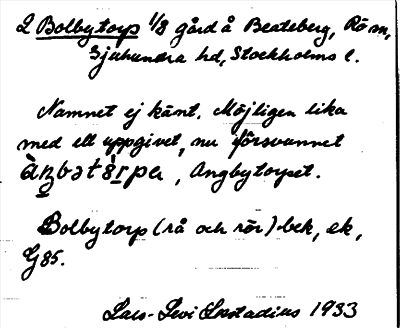 2 Bolbytorp 1/8 gård å Beateberg, Rö sn,
Sjuhundra hd, Stockholms l.
Namnet ej känt. Möjligen lika
med ett uppgivet, nu försvunnet
, Ängbytorpet.
Bolbytorp (rå och rör)-bck, ek,
G85.
Lars-Levi Læstadius 1933